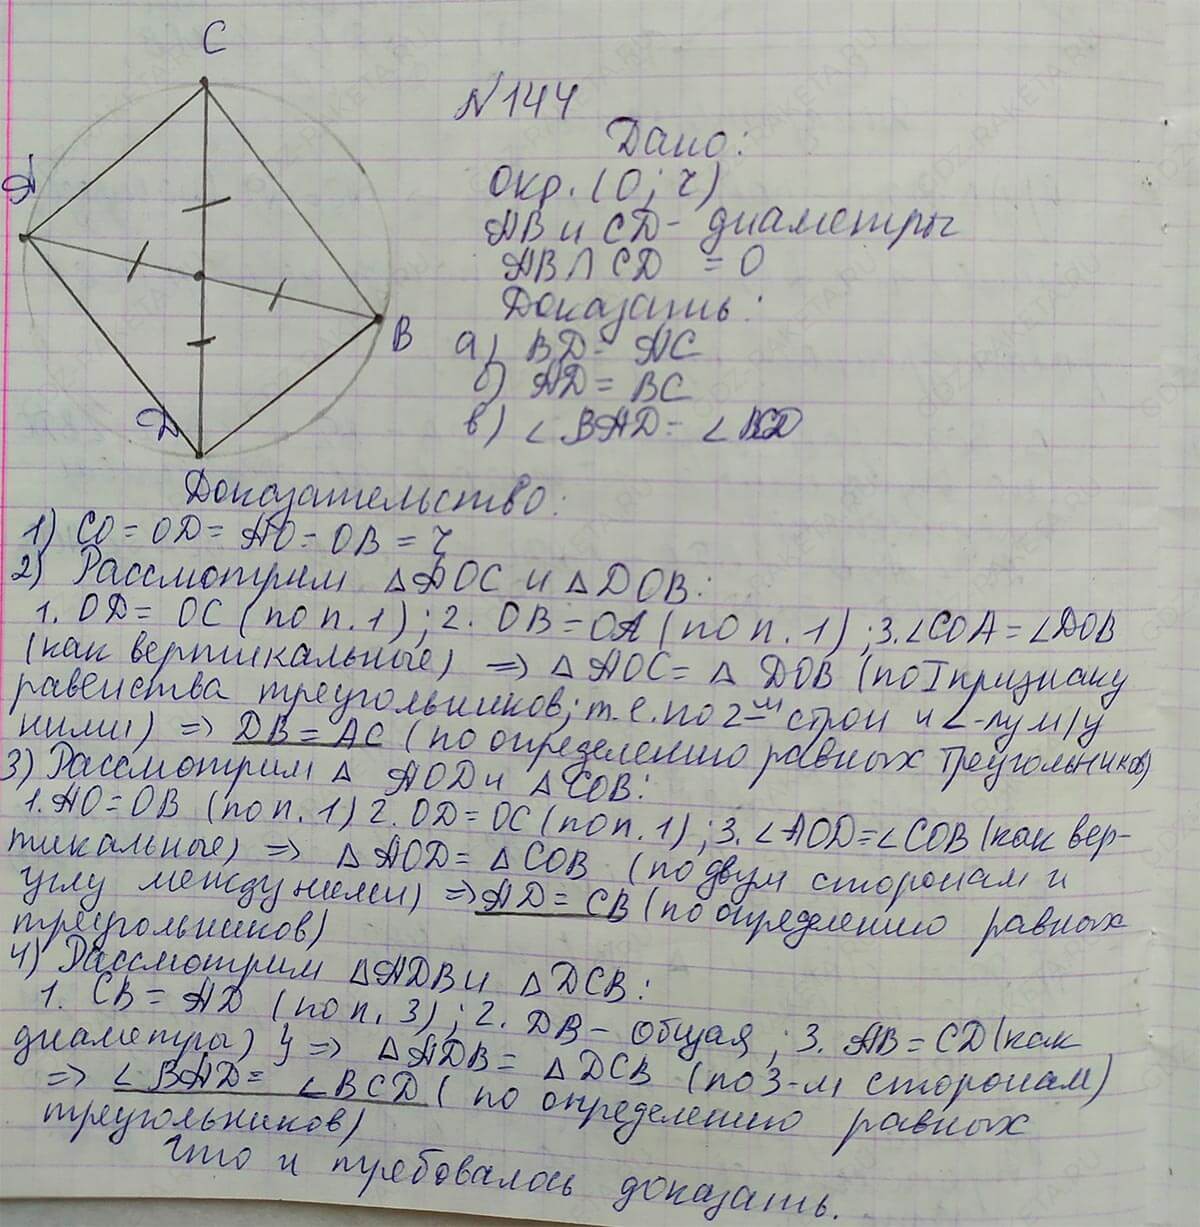 C
N144
Дано:
Окр. (O; r)
D
AB и CD - диаметры
AB ∩ CD = O
Доказать:
B
а) BD = AC
б) AD = BC
D
в) ∠ BAD = ∠ BCD
Доказательство:
1) CO = OD = AO = OB = r
2) Рассмотрим △AOC и △DOB:
1. OD = OC (по п. 1); 2. OB = OA (по п. 1); 3. ∠COA = ∠DOB
(как вертикальные) => △ AOC = △ DOB (по I признаку
равенства треугольников; т.е. по 2-м стор и ∠-лу м/у
ними) => DB = AC (по определению равных треугольников)
3) Рассмотрим △ AOD и △COB:
1. AO = OB (по п. 1) 2. OD = OC (по п. 1); 3. ∠AOD = ∠COB (как вер-
тикальные) => △AOD = △COB (по двум сторонам и
углу между ними) => AD = CB (по определению равных
треугольников)
4) Рассмотрим △ADB и △DCB:
1. CB = AD (по п. 3); 2. DB - общая; 3. AB = CD (как
диаметры) } => △ADB = △DCB (по 3-м сторонам)
=> ∠BAD = ∠BCD (по определению равных
треугольников)
Что и требовалось доказать.